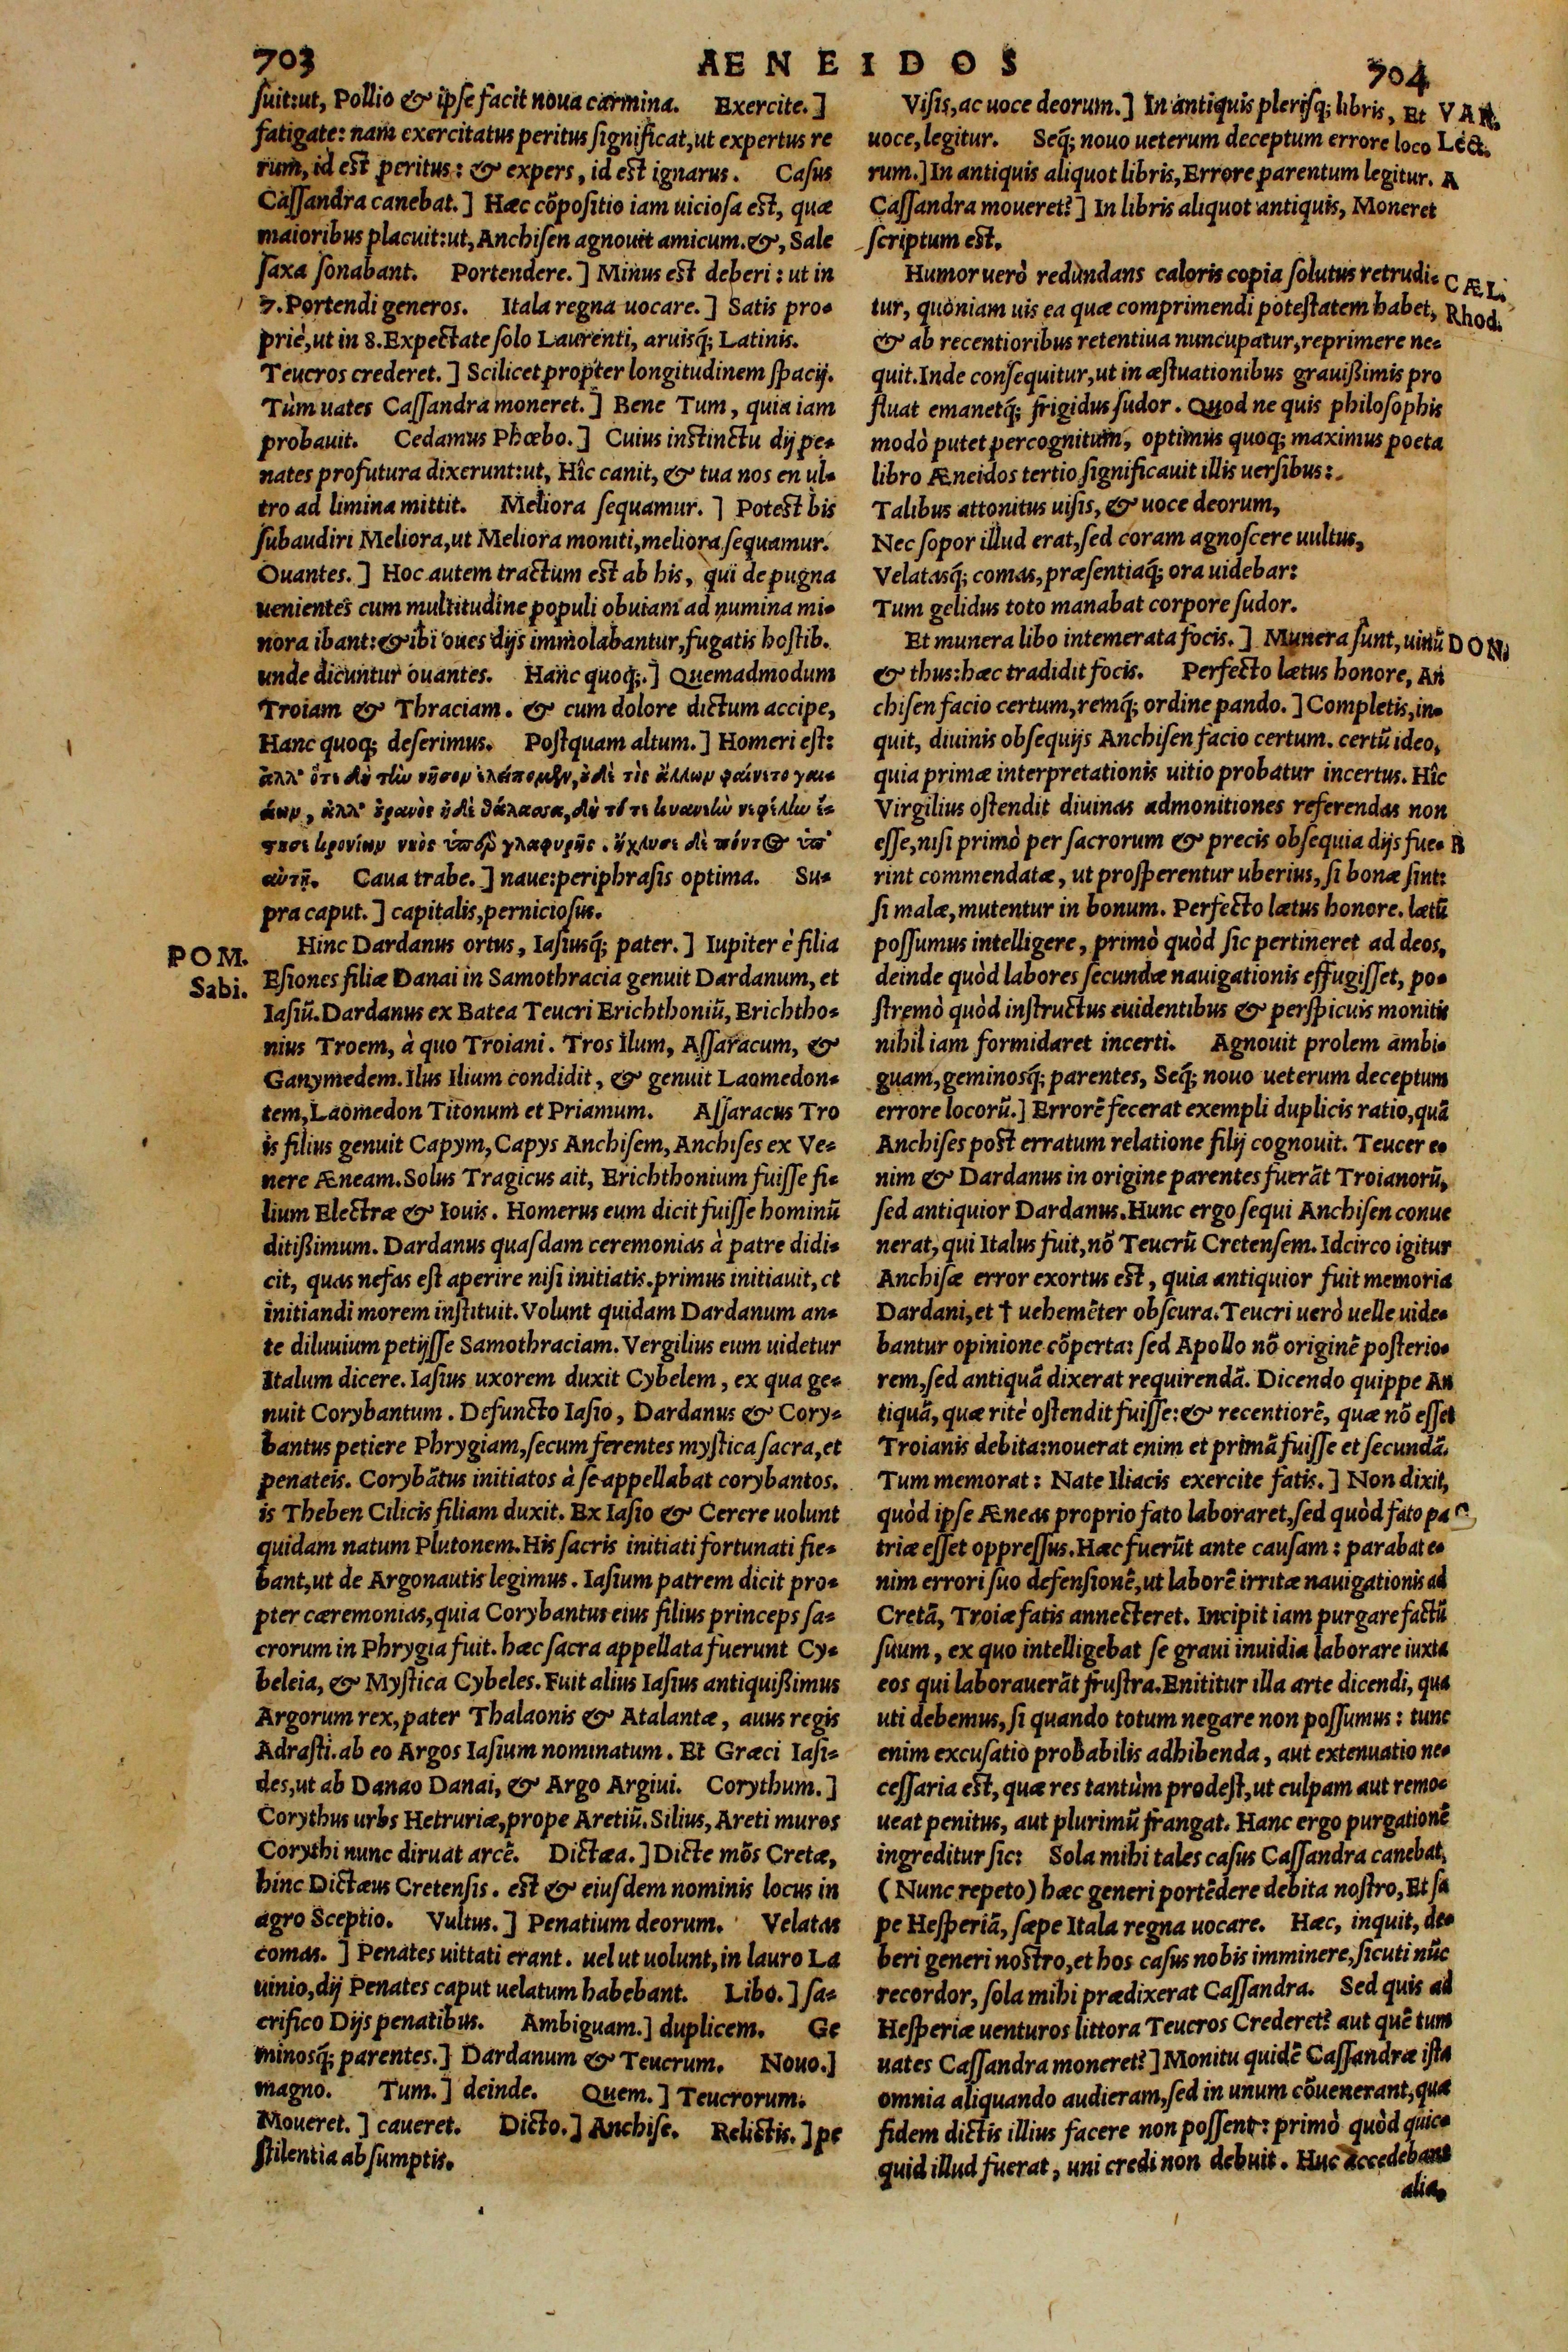 703
AENEIDOS
704
ſuit:ut, Pollio & ipſe facit noua carmina. Exercite.]
fatigate: nam exercitatus peritus ſignificat, ut expertus re
rum, id est peritus: & expers, id est ignarus. Caſus
Caſſandra canebat.] Hæc cõpoſitio iam uicioſa est, quæ
maioribus placuit:ut, Anchiſen agnouit amicum.&, Sale
ſaxa ſonabant. Portendere.] Minus est deberi: ut in
7.Portendi generos. Itala regna uocare.] Satis pro-
priè, ut in 8.Expectate ſolo Laurenti, aruisq́; Latinis.
Teucros crederet.] Scilicet propter longitudinem ſpacij.
Tùm uates Caſſandra moneret.] Bene Tum, quia iam
probauit. Cedamus Phœbo.] Cuius instinctu dij pe-
nates profutura dixerunt:ut, Hîc canit, & tua nos en ul-
tro ad limina mittit. Meliora ſequamur.] Potest bis
ſubaudiri Meliora, ut Meliora moniti, meliora ſequamur.
Ouantes.] Hoc autem tractum est ab his, qui de pugna
uenientes cum multitudine populi obuiam ad numina mi-
nora ibant:& ibi oues dijs immolabantur, fugatis hoſtib.
unde dicuntur ouantes. Hanc quoq́;.] Quemadmodum
Troiam & Thraciam. & cum dolore dictum accipe,
Hanc quoq; deſerimus. Poſtquam altum.] Homeri eſt:
ἀλλ' ὅτε δὴ τὴν νῆσον ἐλείπομεν, οὐδὲ τὶς ἄλλων φαίνετο γαι-
άων, ἀλλ' οὐρανὸς ἠδὲ θάλασσα, δὴ τότε κυανεὴν νεφέλην ἔ-
στησε κρονίων νηὸς ὑπὲρ γλαφυρῆς. ἤχλυσε δὲ πόντος ὑπ'
αὐτῆ. Caua trabe.] naue:periphraſis optima. Su-
pra caput.] capitalis, pernicioſus.
POM.
Sabi.
Hinc Dardanus ortus, Iaſiusq́; pater.] Iupiter è filia
Eſiones filiæ Danai in Samothracia genuit Dardanum, et
Iaſiũ. Dardanus ex Batea Teucri Erichthoniũ, Erichtho-
nius Troem, à quo Troiani. Tros Ilum, Aſſaracum, &
Ganymedem. Ilus Ilium condidit, & genuit Laomedon-
tem, Laomedon Titonum et Priamum. Aſſaracus Tro
is filius genuit Capym, Capys Anchiſem, Anchiſes ex Ve-
nere Æneam. Solus Tragicus ait, Erichthonium fuiſſe fi-
lium Electræ & Iouis. Homerus eum dicit fuiſſe hominũ
ditißimum. Dardanus quaſdam ceremonias à patre didi-
cit, quas nefas eſt aperire niſi initiatis. primus initiauit, et
initiandi morem inſtituit. Volunt quidam Dardanum an-
te diluuium petijſſe Samothraciam. Vergilius eum uidetur
Italum dicere. Iaſius uxorem duxit Cybelem, ex qua ge-
nuit Corybantum. Defuncto Iaſio, Dardanus & Cory-
bantus petiere Phrygiam, ſecum ferentes myſtica ſacra, et
penateis. Corybãtus initiatos à ſe appellabat corybantos.
is Theben Cilicis filiam duxit. Ex Iaſio & Cerere uolunt
quidam natum Plutonem. His ſacris initiati fortunati fie-
bant, ut de Argonautis legimus. Iaſium patrem dicit pro-
pter cæremonias, quia Corybantus eius filius princeps ſa-
crorum in Phrygia fuit. hæc ſacra appellata fuerunt Cy-
beleia, & Myſtica Cybeles. Fuit alius Iaſius antiquißimus
Argorum rex, pater Thalaonis & Atalantæ, auus regis
Adraſti. ab eo Argos Iaſium nominatum. Et Græci Iaſi-
des, ut ab Danao Danai, & Argo Argiui. Corythum.]
Corythus urbs Hetruriæ, prope Aretiũ. Silius, Areti muros
Corythi nunc diruat arcẽ. Dictæa.] Dicte mõs Cretæ,
hinc Dictæus Cretenſis. est & eiuſdem nominis locus in
agro Sceptio. Vultus.] Penatium deorum. Velatas
comas.] Penates uittati erant. uel ut uolunt, in lauro La
uinio, dij Penates caput uelatum habebant. Libo.] ſa-
crifico Dijs penatibus. Ambiguam.] duplicem. Ge
minosq́; parentes.] Dardanum & Teucrum. Nouo.]
magno. Tum.] deinde. Quem.] Teucrorum.
Moueret.] caueret. Dicto.] Anchiſe. Relictis.] pe
ſtilentia abſumptis.
Viſis, ac uoce deorum.] In antiquis pleriſq; libris, Et
VAR.
uoce, legitur. Seq́; nouo ueterum deceptum errore loco
Lect.
rum.] In antiquis aliquot libris, Errore parentum legitur.
A
Caſſandra moueret?] In libris aliquot antiquis, Moneret
ſcriptum est.
Humor uerò redundans caloris copia ſolutus retrudi-
CÆL.
tur, quoniam uis ea quæ comprimendi poteſtatem habet,
Rhod.
& ab recentioribus retentiua nuncupatur, reprimere ne-
quit. Inde conſequitur, ut in æſtuationibus grauißimis pro
fluat emanetq́; frigidus ſudor. Quod ne quis philoſophis
modò putet percognitum, optimus quoq; maximus poeta
libro Æneidos tertio ſignificauit illis uerſibus:
Talibus attonitus uiſis, & uoce deorum,
Nec ſopor illud erat, ſed coram agnoſcere uultus,
Velatasq́; comas, præſentiaq́; ora uidebar:
Tum gelidus toto manabat corpore ſudor.
Et munera libo intemerata focis.] Munera ſunt, uinũ
DON.
& thus: hæc tradidit focis. Perfecto lætus honore, An
chiſen facio certum, remq́; ordine pando.] Completis, in-
quit, diuinis obſequijs Anchiſen facio certum. certũ ideo,
quia primæ interpretationis uitio probatur incertus. Hîc
Virgilius oſtendit diuinas admonitiones referendas non
eſſe, niſi primò per ſacrorum & precis obſequia dijs fue-
B
rint commendatæ, ut proſperentur uberius, ſi bonæ ſint:
ſi malæ, mutentur in bonum. Perfecto lætus honore. lætũ
poſſumus intelligere, primò quòd ſic pertineret ad deos,
deinde quòd labores ſecundæ nauigationis effugiſſet, po-
ſtremò quòd inſtructus euidentibus & perſpicuis monitis
nihil iam formidaret incerti. Agnouit prolem ambi-
guam, geminosq́; parentes, Seq́; nouo ueterum deceptum
errore locorũ.] Errorẽ fecerat exempli duplicis ratio, quã
Anchiſes post erratum relatione filij cognouit. Teucer e-
nim & Dardanus in origine parentes fuerãt Troianorũ,
ſed antiquior Dardanus. Hunc ergo ſequi Anchiſen conue
nerat, qui Italus fuit, nõ Teucrũ Cretenſem. Idcirco igitur
Anchiſæ error exortus est, quia antiquior fuit memoria
Dardani, et † uehemẽter obſcura. Teucri uerò uelle uide-
bantur opinione cõperta: ſed Apollo nõ originẽ poſterio-
rem, ſed antiquã dixerat requirendã. Dicendo quippe An
tiquã, quæ ritè oſtendit fuiſſe:& recentiorẽ, quæ nõ eſſet
Troianis debita: nouerat enim et primã fuiſſe et ſecundã.
Tum memorat: Nate Iliacis exercite fatis.] Non dixit,
quòd ipſe Æneas proprio fato laboraret, ſed quòd fato pa
C
triæ eſſet oppreſſus. Hæc fuerũt ante cauſam: parabat e-
nim errori ſuo defenſionẽ, ut laborẽ irritæ nauigationis ad
Cretã, Troiæ fatis annecteret. Incipit iam purgare factũ
ſuum, ex quo intelligebat ſe graui inuidia laborare iuxta
eos qui laborauerãt fruſtra. Enititur illa arte dicendi, qua
uti debemus, ſi quando totum negare non poſſumus: tunc
enim excuſatio probabilis adhibenda, aut extenuatio ne-
ceſſaria est, quæ res tantùm prodeſt, ut culpam aut remo-
ueat penitus, aut plurimũ frangat. Hanc ergo purgationẽ
ingreditur ſic: Sola mihi tales caſus Caſſandra canebat,
(Nunc repeto) hæc generi portẽdere debita noſtro, Et ſæ
pe Heſperiã, ſæpe Itala regna uocare. Hæc, inquit, de-
beri generi nostro, et hos caſus nobis imminere, ſicuti nũc
recordor, ſola mihi prædixerat Caſſandra. Sed quis ad
Heſperiæ uenturos littora Teucros Crederet? aut quẽ tum
uates Caſſandra moneret?] Monitu quidẽ Caſſandræ iſta
omnia aliquando audieram, ſed in unum cõuenerant, quæ
fidem dictis illius facere non poſſent: primò quòd quic-
quid illud fuerat, uni credi non debuit. Huc accedebant
alia,